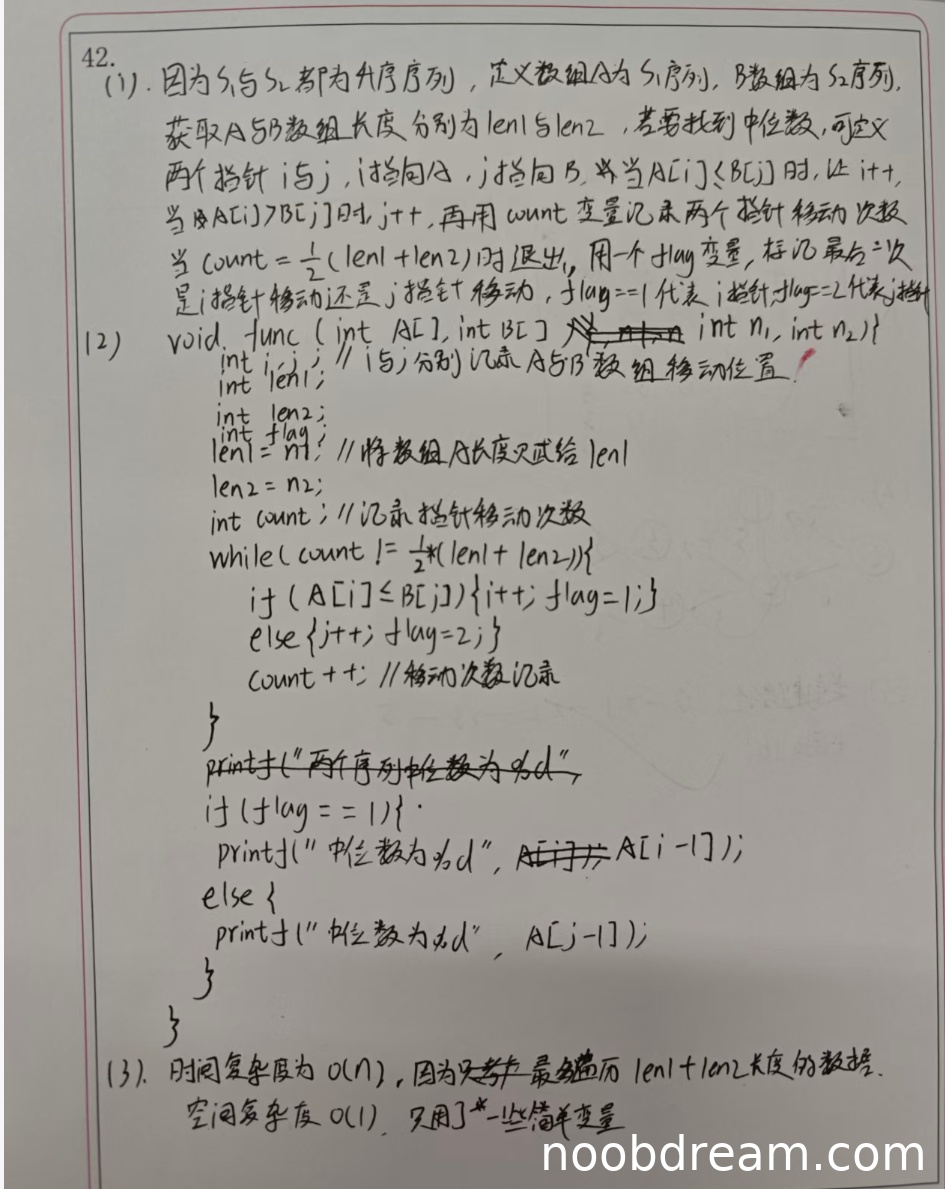 42.
(1). 因为S₁与S₂都为升序序列，定义数组A为S₁序列，B数组为S₂序列，
获取A与B数组长度分别为len1与len2，若要找到中位数，可定义
两个指针i与j，i指向A，j指向B，当A[i]≤B[j]时，让i++，
当A[i]>B[j]时，j++，再用count变量记录两个指针移动次数
当count=1/2(len1+len2)时退出，用一个flag变量，标记最后一次
是i指针移动还是j指针移动，flag==1代表i指针，flag==2代表j指针
(2) void func (int A[], int B[], int n₁, int n₂){
int i, j; // i与j分别记录A与B数组移动位置
int len1;
int len2;
int flag;
len1 = n1; //将数组A长度赋给len1
len2 = n2;
int count; //记录指针移动次数
while(count != 1/2*(len1+len2)){
if(A[i]≤B[j]){i++; flag=1;}
else{j++; flag=2;}
count++; //移动次数记录
}
printf("两个序列中位数为%d",
if(flag==1){
printf("中位数为%d", A[i]); A[i-1]);
else{
printf("中位数为%d", A[j-1]);
}
}
(3). 时间复杂度为O(n)，因为最多遍历len1+len2长度的数据.
空间复杂度O(1). 只用了一些简单变量
noobdream.com